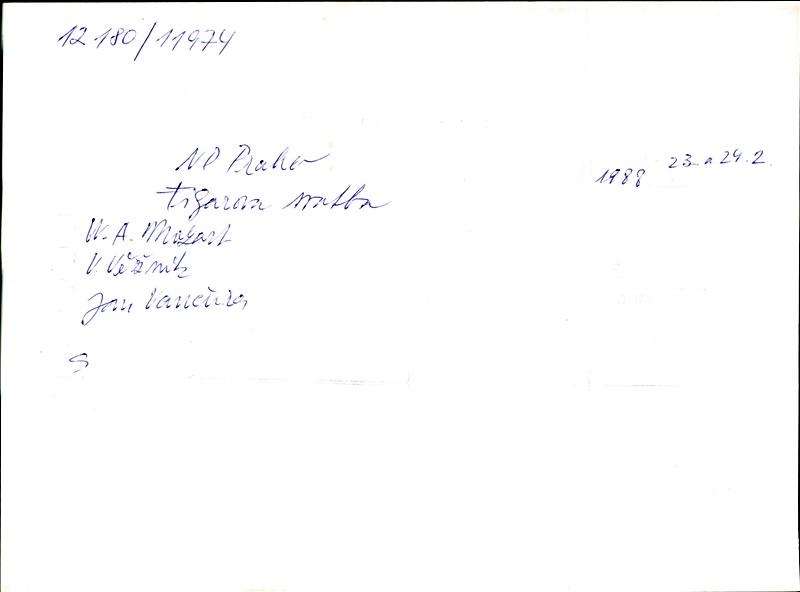 12 180/11974
ND Praha
1988 23. a 24. 2.
Figarova svatba
W. A. Mozart
V. Věžník
Jan Vančura
S